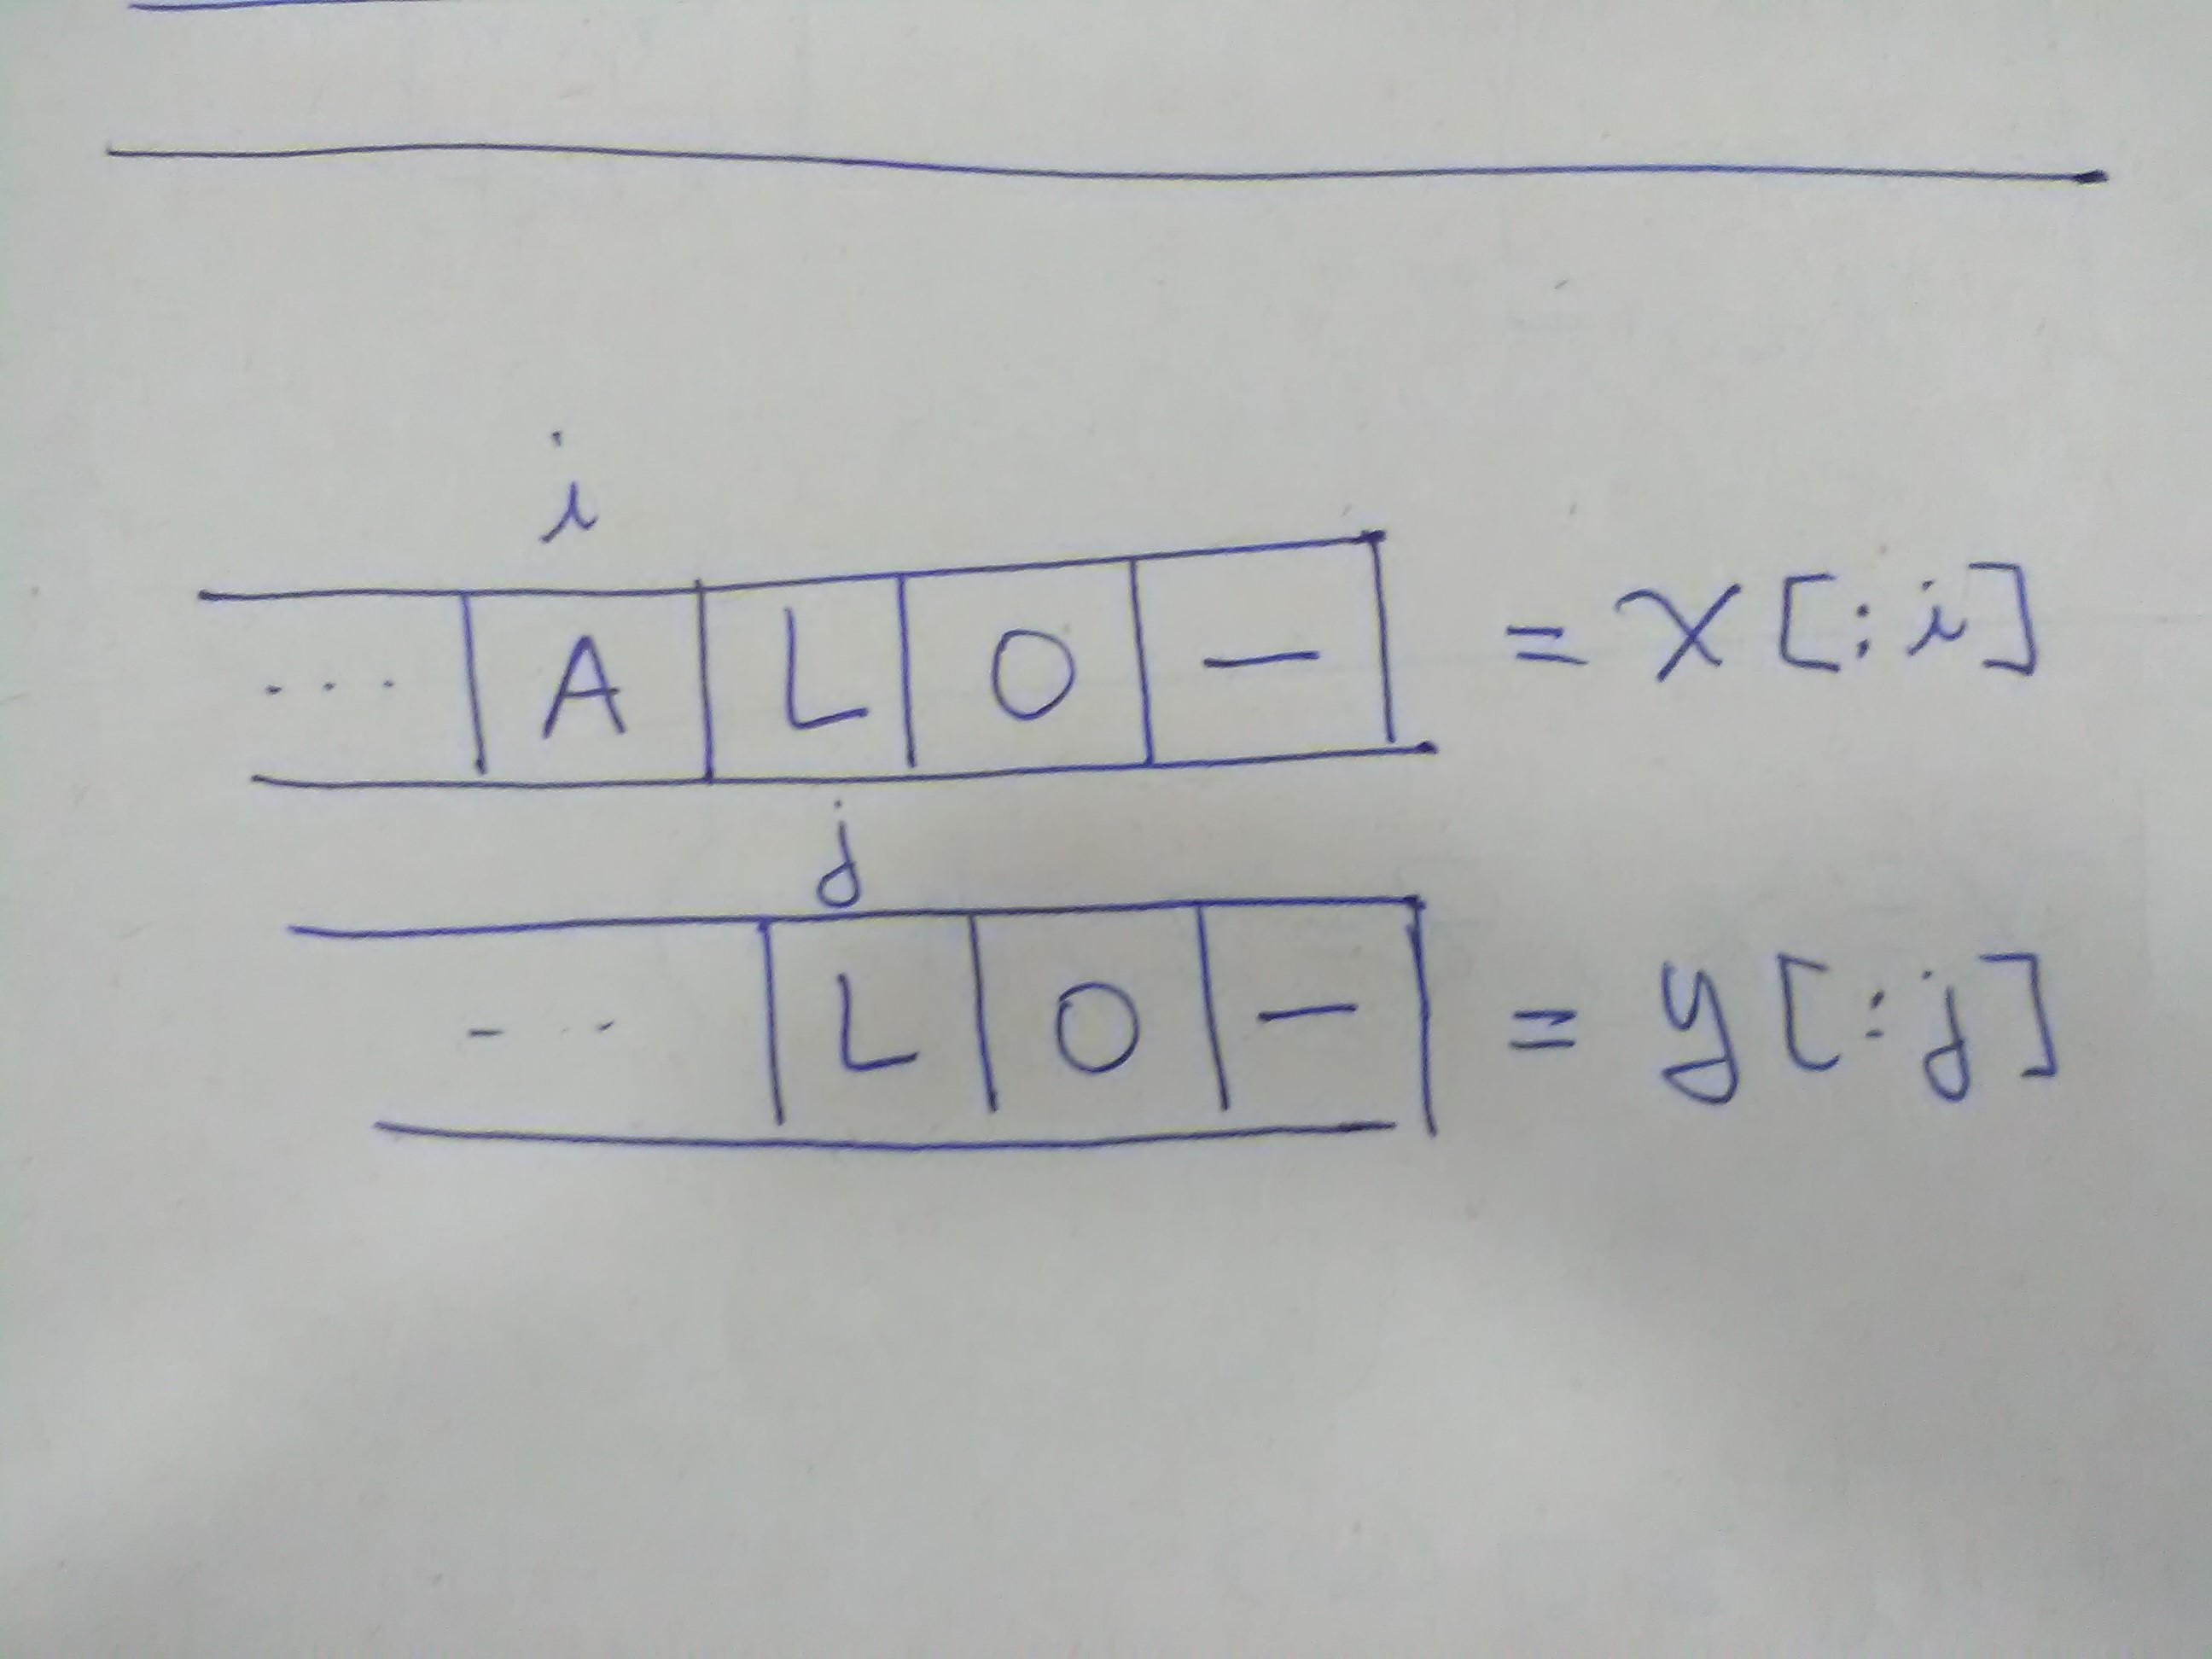 i
... A L O — = x[:i]
j
- .. L O — = y[:j]